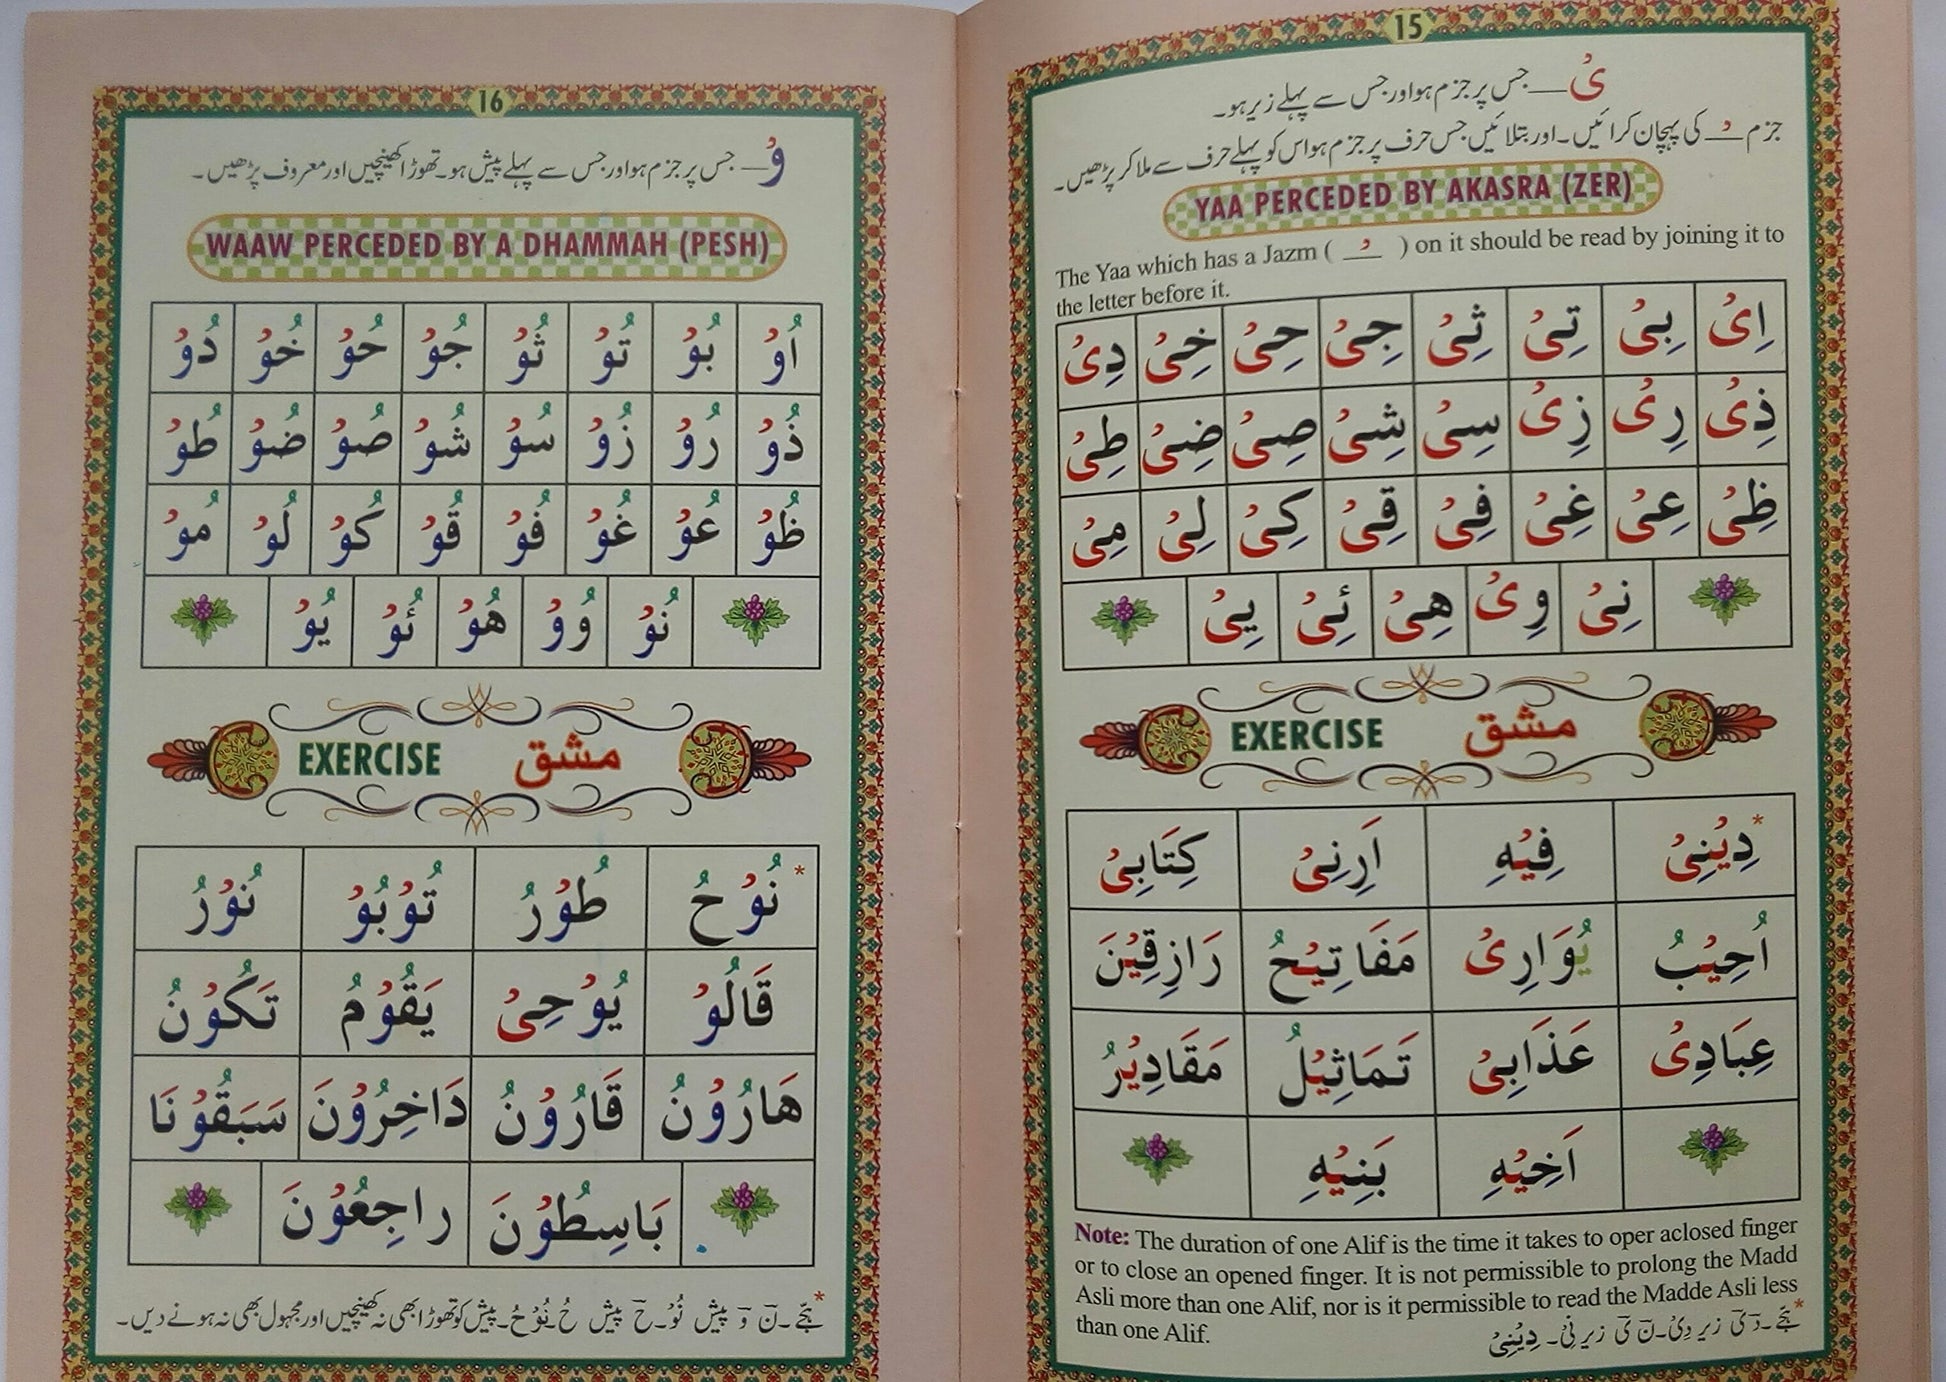 15
یْ — جس پر جزم ہو اور جس سے پہلے زیر ہو۔
جزم ـْ کی پہچان کرائیں۔ اور بتلائیں جس حرف پر جزم ہو اس کو پہلے حرف سے ملا کر پڑھیں۔
YAA PERCEDED BY AKASRA (ZER)
The Yaa which has a Jazm ( ـْ ) on it should be read by joining it to
the letter before it.
اِیْ بِیْ تِیْ ثِیْ جِیْ حِیْ خِیْ دِیْ
ذِیْ رِیْ زِیْ سِیْ شِیْ صِیْ ضِیْ طِیْ
ظِیْ عِیْ غِیْ فِیْ قِیْ کِیْ لِیْ مِیْ
نِیْ وِیْ هِیْ ئِیْ یِیْ
EXERCISE مشق
*دِیْنِیْ فِیْهِ اَرِنِیْ کِتَابِیْ
اُجِیْبُ یُوَارِیْ مَفَاتِیْحُ رَازِقِیْنَ
عِبَادِیْ عَذَابِیْ تَمَاثِیْلُ مَقَادِیْرُ
اَخِیْهِ بَنِیْهِ
Note: The duration of one Alif is the time it takes to oper aclosed finger
or to close an opened finger. It is not permissible to prolong the Madd
Asli more than one Alif, nor is it permissible to read the Madde Asli less
than one Alif.
* ہجّے۔ دَ یَ زیر دِیْ۔ نَ یَ زیر نِیْ۔ دِیْنِیْ
16
وْ — جس پر جزم ہو اور جس سے پہلے پیش ہو۔ تھوڑا کھینچیں اور معروف پڑھیں۔
WAAW PERCEDED BY A DHAMMAH (PESH)
اُوْ بُوْ تُوْ ثُوْ جُوْ حُوْ خُوْ دُوْ
ذُوْ رُوْ زُوْ سُوْ شُوْ صُوْ ضُوْ طُوْ
ظُوْ عُوْ غُوْ فُوْ قُوْ کُوْ لُوْ مُوْ
نُوْ وُوْ هُوْ ئُوْ یُوْ
EXERCISE مشق
*نُوْحُ طُوْرُ تُوْبُوْ نُوْرُ
قَالُوْ یُوْحِیْ یَقُوْمُ تَکُوْنُ
هَارُوْنُ قَارُوْنُ دَاخِرُوْنَ سَبَقُوْنَا
بَاسِطُوْنَ راجِعُوْنَ
* ہجّے۔ نَ وَ پیش نُوْ۔ حَ پیش حُ۔ نُوْحُ۔ پیش کو تھوڑا بھی نہ کھینچیں اور مجہول بھی نہ ہونے دیں۔